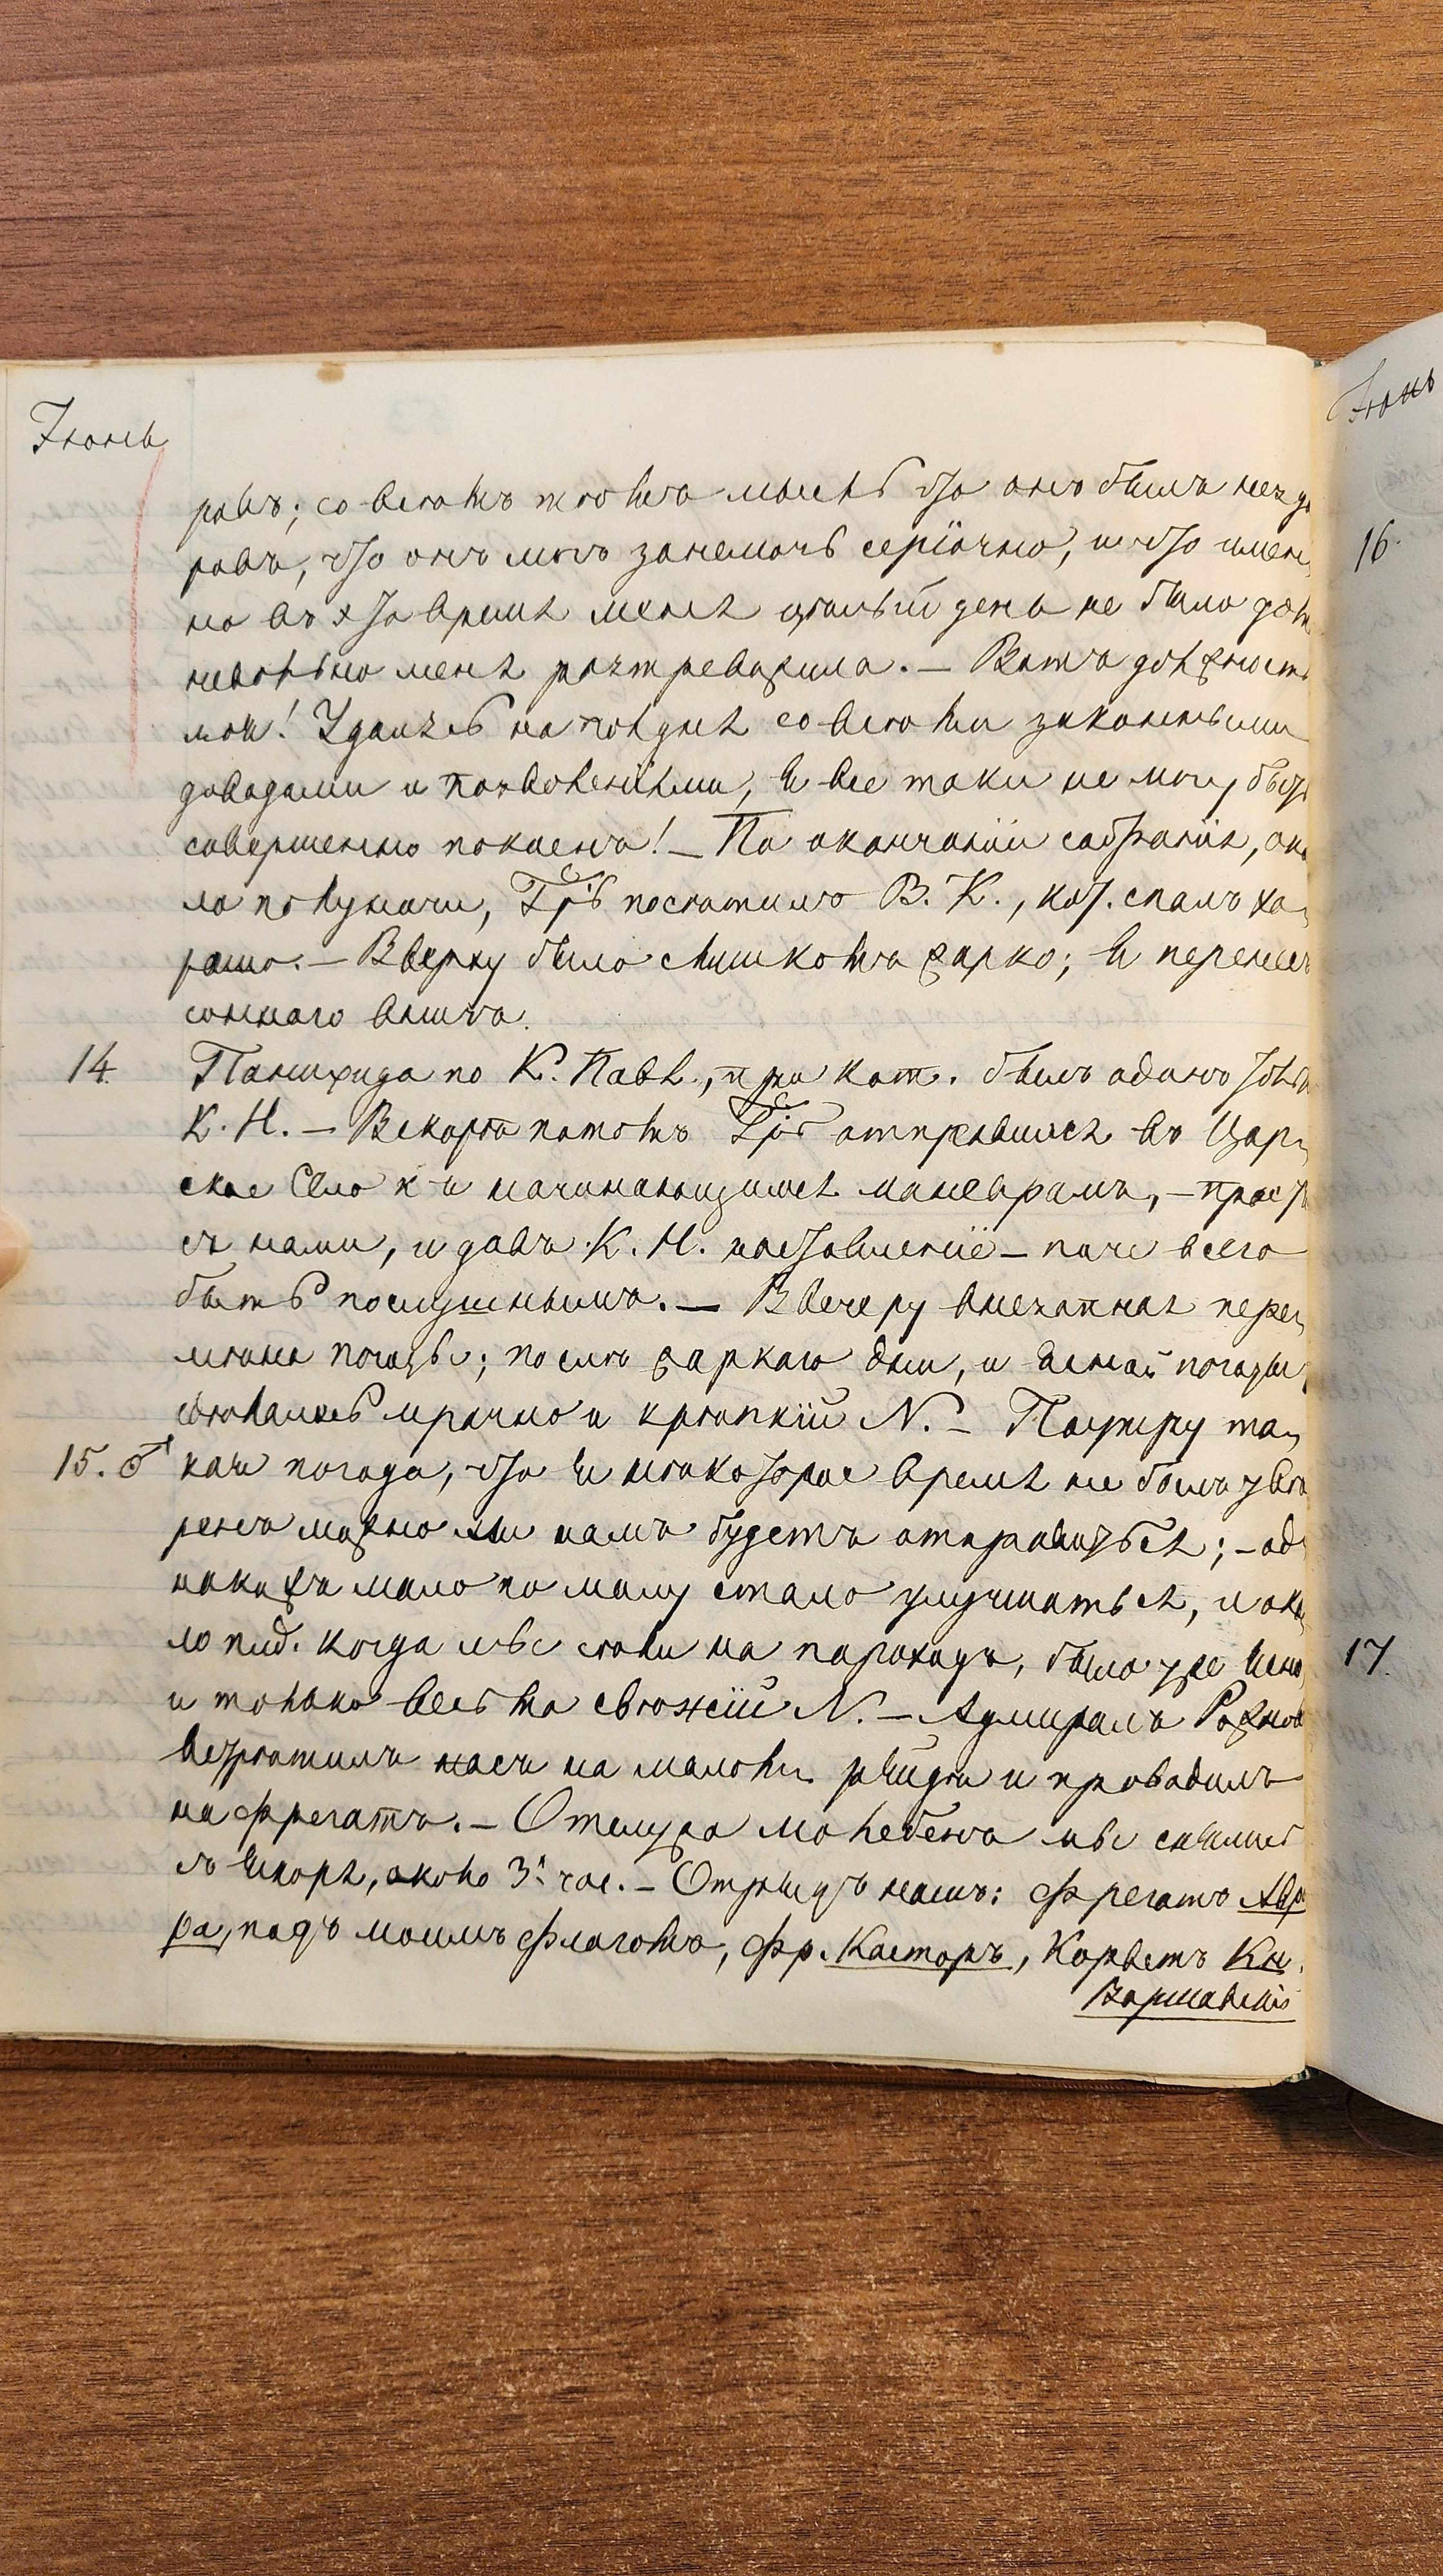 Іюнь
ровъ; со всѣмъ тѣмъ мысль что онъ былъ нездо
ровъ, что онъ могъ занемочь серіочно, и что имен,
но въ это время меня цѣлый день не было дома
невольно меня растревожила. – Вотъ должность
моя! Удалясь на полдня со всѣми законными
доводами и позволеніями, я все таки не могу быть
совершенно покоенъ! – По окончаніи собранія, око
ло полуночи, Гдрь посѣтилъ В. К., кот. спалъ хо,
рошо. – Вверху было слишкомъ жарко; я перенесъ
соннаго внизъ.
14. Панихида по К. Павл., при кот. былъ одинъ только
К. Н. – Вскорѣ потомъ Гдрь отправился въ Цар,
ское Село къ начинающимся маневрамъ, – прост
съ нами, и давъ К. Н. наставленіе – паче всего
быть послушнымъ. – Ввечеру внезапная пере,
мѣна погоды; послѣ жаркаго дня, и ясной погоды,
сдѣлалось мрачно и крѣпкій N. – Поутру та,
15. ♂ кая погода, что я нѣкоторое время не былъ увѣ
ренъ можно ли намъ будетъ отправиться; – од
накожъ мало по малу стало улучшаться, и око,
ло плд. когда мы сѣли на пароходъ, было уже ясно,
и только весьма свѣжій N. – Адмиралъ Рожнов
встрѣтилъ насъ на маломъ рейдѣ и проводилъ
на фрегатъ. – Отслужа молебенъ мы снялись
съ якоря, около 3х час. – Отрядъ нашъ: фрегатъ Авро
ра, подъ моимъ флагомъ, фр. Касторъ, Корветъ Кн.
Варшавскій
Іюнь
16.
17.